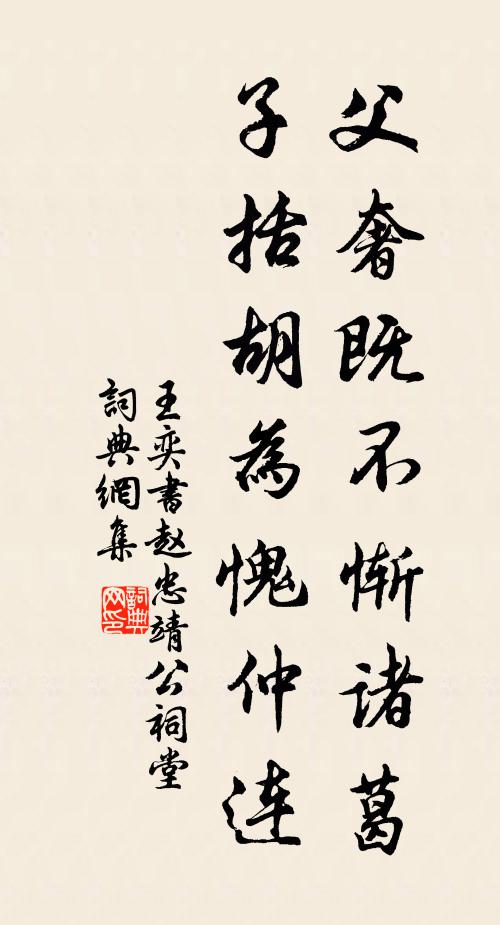 父奢既不慚诸葛
子括胡為愧仲连
王奕書赵忠靖公祠堂
詞典網集
詞典
网印